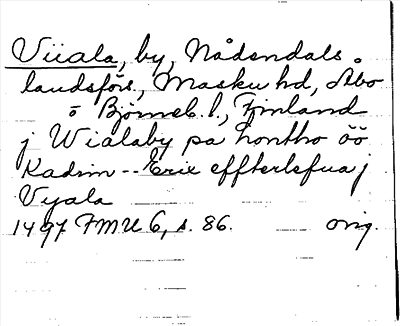 Viiala, by, Nådendals
landsförs., Masku hd, Åbo
o Björneb. l., Finland
j Wialaby pa honttho öö
Kadrin -- Erix effterlefua j
Vyala
1497 FMU 6, s. 86. orig.